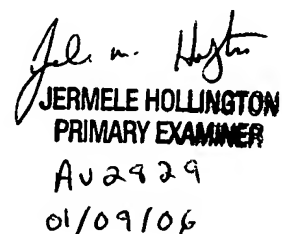 JERMELE HOLLINGTON
PRIMARY EXAMINER
AU 2829
01/09/06